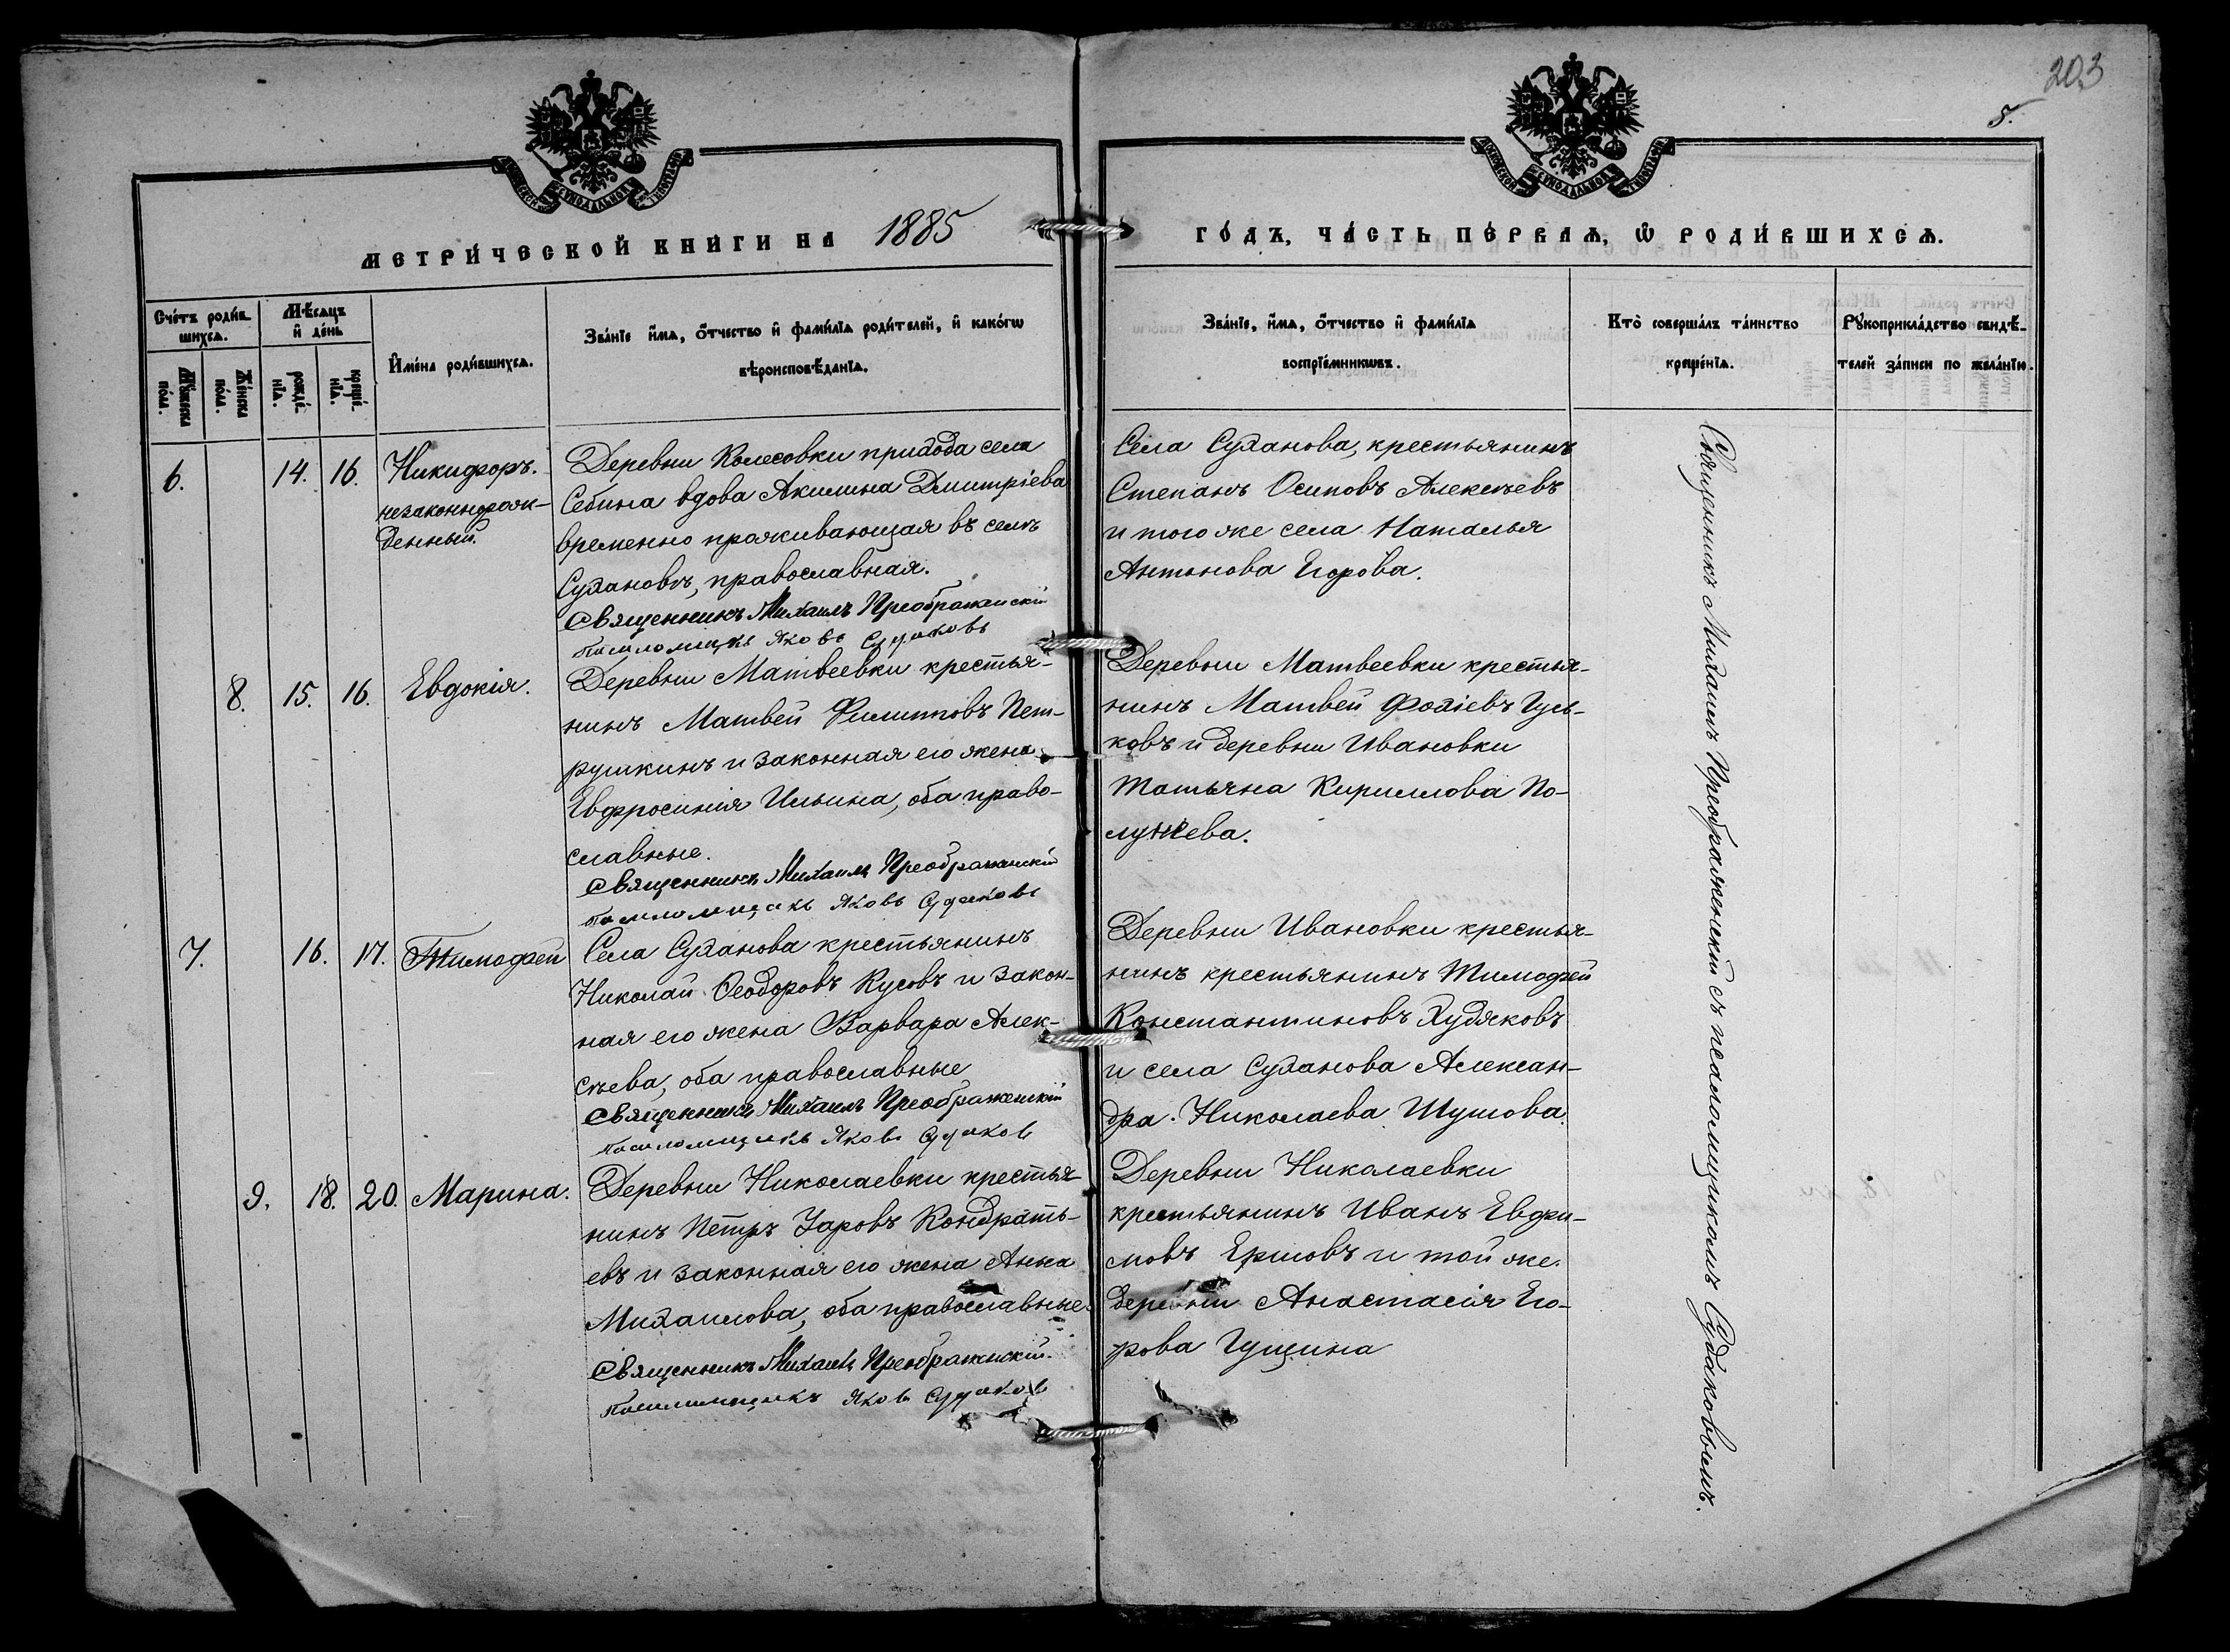 203
5.
МОСКОВСКОЙ СѴНОДАЛЬНОЙ ТИПОГРАФІИ
МОСКОВСКОЙ СѴНОДАЛЬНОЙ ТИПОГРАФІИ
МЕТРИ́ЧЕСКОЙ КНИ́ГИ НА 1885
ГО́ДЪ, ЧА́СТЬ ПЕ́РВАѦ, Ѡ҆ РОДИ́ВШИХСѦ.
Сче́тъ роди́в-
шихсѧ.
Мꙋ́жеска
по́ла.
Же́нска
по́ла.
Мѣ́сѧцъ
и҆ де́нь
рожде́-
нїѧ.
креще́-
нїѧ.
И҆мена̀ роди́вшихсѧ.
Зва́нїе и҆́мѧ, о҆́тчество и҆ фами́лїѧ роди́телей, и҆ како́гѡ
вѣроисповѣ́данїѧ.
Зва́нїе, и҆́мѧ, о҆́тчество и҆ фами́лїѧ
воспрїе́мникѡвъ.
Кто̀ соверша́лъ та́инство
креще́нїѧ.
Рꙋкоприкла́дство свидѣ́-
телей за́писи по жела́нїю.
6. 14. 16. Никифоръ.
незаконнорож-
денный.
Деревни Колесовки прихода села
Себина вдова Акилина Дмитріева
временно проживающая въ селѣ
Сухановѣ, православная.
Священникъ Михаилъ Преображенскій
Псаломщикъ Яковъ Судаковъ
Села Суханова, крестьянинъ
Степанъ Осиповъ Алексѣевъ
и того же села Наталья
Антонова Егорова.
8. 15. 16. Евдокія.
Деревни Матвеевки крестья-
нинъ Матвей Филипповъ Пет-
рушкинъ и законная его жена
Евфросинія Ильина, оба право-
славные.
Священникъ Михаилъ Преображенскій
Псаломщикъ Яковъ Судаковъ
Деревни Матвеевки крестья-
нинъ Матвей Фокіевъ Гусь-
ковъ и деревни Ивановки
Татьяна Кириллова По-
лунеева.
7. 16. 17. Тимофей
Села Суханова крестьянинъ
Николай Ѳеодоровъ Кусовъ и закон-
ная его жена Варвара Алек-
сѣева, оба православные
Священникъ Михаилъ Преображенскій
Псаломщикъ Яковъ Судаковъ
Деревни Ивановки крестья-
нинъ крестьянинъ Тимофей
Константиновъ Худяковъ
и села Суханова Алексан-
дра Николаева Шутова.
9. 18. 20. Марина.
Деревни Николаевки крестья-
нинъ Петръ Уаровъ Кондрать-
евъ и законная его жена Анна
Михаилова, оба православные.
Священникъ Михаилъ Преображенскій.
Псаломщикъ Яковъ Судаковъ
Деревни Николаевки
крестьянинъ Иванъ Евфи-
мовъ Ершовъ и той же
деревни Анастасія Его-
рова Гущина
Священникъ Михаилъ Преображенскій съ псаломщикомъ Судаковымъ.